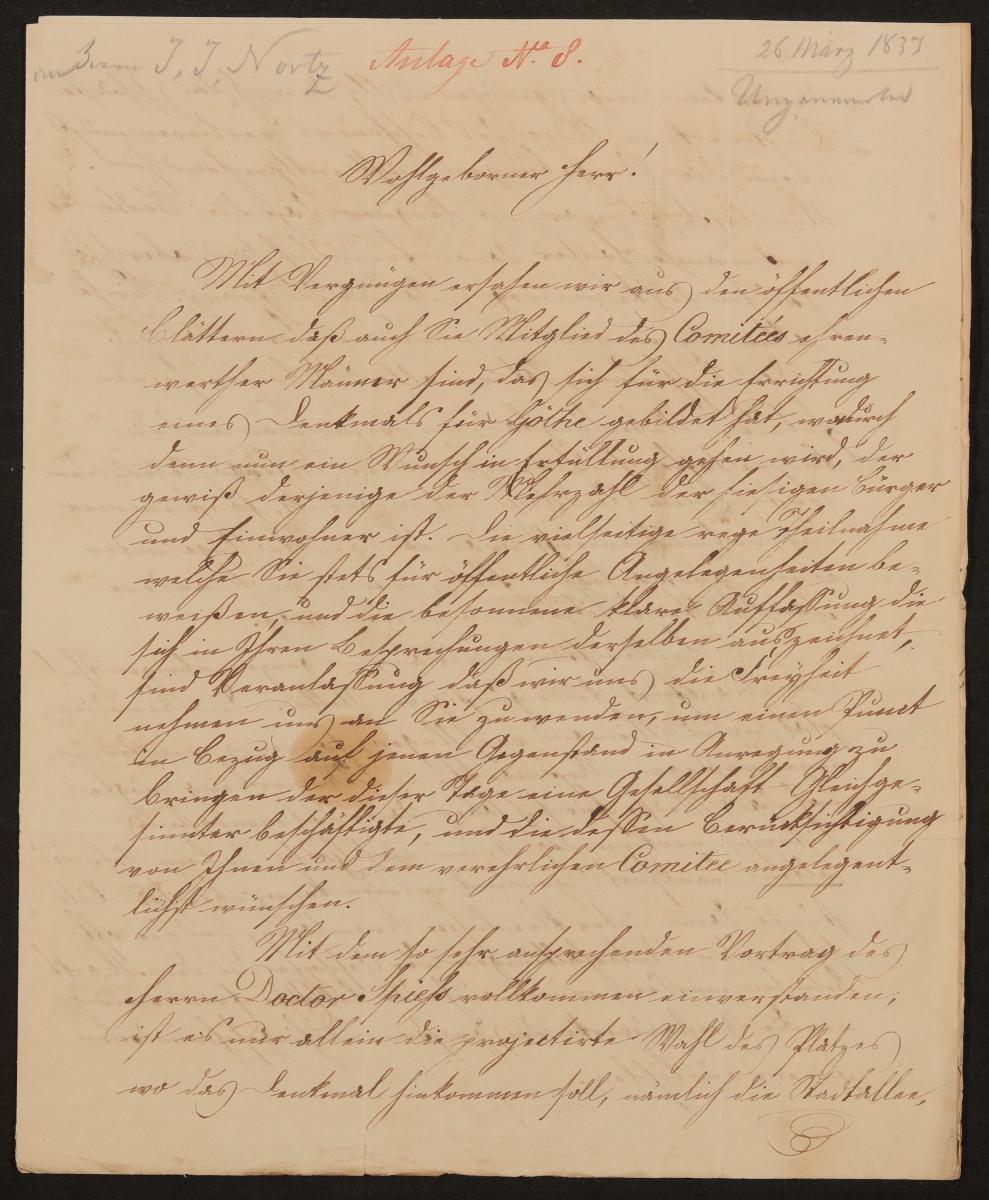 an Herrn J. J. Nortz
Anlage No 8.
26 März 1837
Ungenannter
Wohlgeborner Herr!
Mit Vergnügen ersahen wir aus den öffentlichen
Blättern daß auch Sie Mitglied des Comitées ehren-
werther Männer sind, das sich für die Errichtung
eines Denkmals für Göthe gebildet hat, wodurch
denn nun ein Wunsch in Erfüllung gehen wird, der
gewiß derjenige der Mehrzahl der hiesigen Bürger
und Einwohner ist. Die vielseitige rege Theilnahme
welche Sie stets für öffentliche Angelegenheiten be-
weißen, und die besonnene klare Auffassung die
sich in Ihren Besprechungen derselben auszeichnet,
sind Veranlassung daß wir uns die Freyheit
nehmen uns an Sie zu wenden, um einen Punct
in Bezug auf jenen Gegenstand in Anregung zu
bringen der dieser Tage eine Gesellschaft Gleichge-
sinnter beschäftigte, und die dessen Berücksichtigung
von Ihnen und dem verehrlichen Comitee angelegent-
lichst wünschen.
Mit dem so sehr ansprechenden Vortrag des
Herrn Doctor Spieß vollkommen einverstanden,
ist es nur allein die projectirte Wahl des Platzes
wo das Denkmal hinkommen soll, nämlich die Stadtallee,